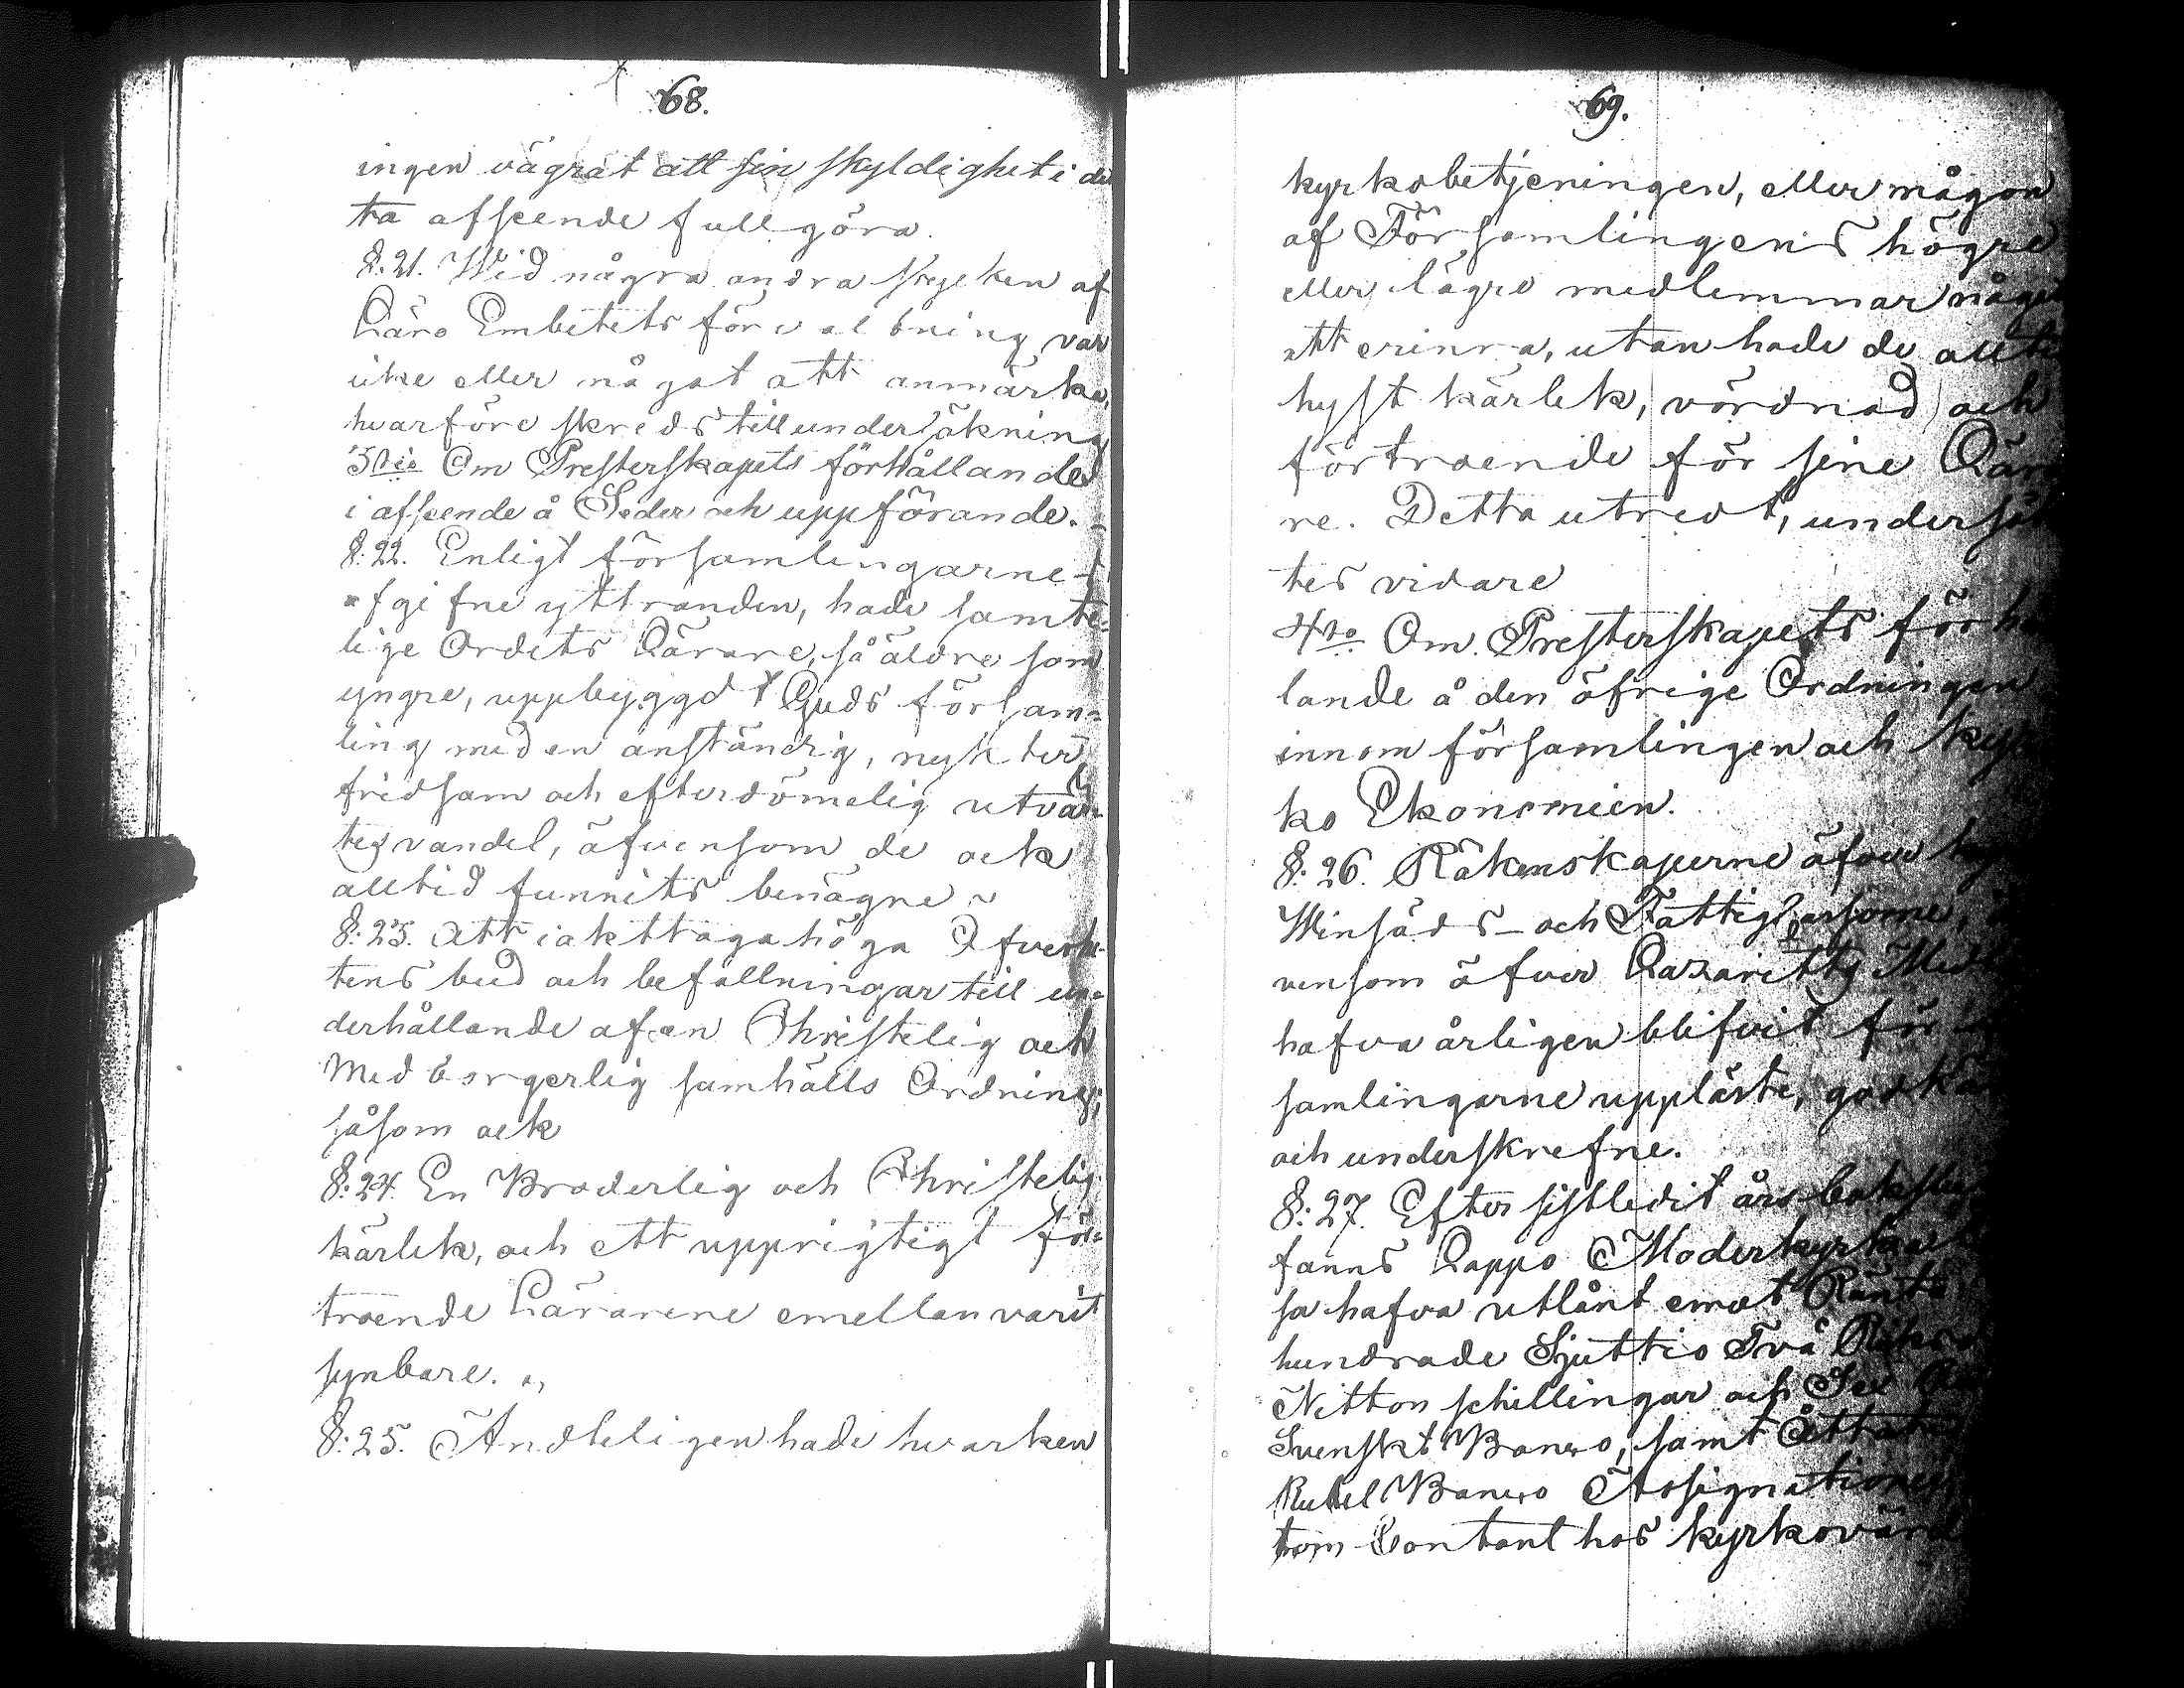 68.
ingen vägrat att sin skyldighet i det
ta afseende fullgöra.
§. 21. Wid några andra stycken af
Läro Embetets förvaltning var
icke eller något att anmärka,
hvarföre skreds till undersökning
3tio Om Presterskapets förhållande
i afseende å Seder och uppförande.
§. 22. Enligt församlingarnes
afgifne yttranden, hade samte-
lige Ordets Lärare, så äldre som
yngre, uppbyggdt Guds försam-
ling med en anständig, nykter
fridsam och efterdömelig utvär-
tes vandel, äfvensom de ock
alltid funnits benägne
§. 23. Att iakttaga höga Öfverhe-
tens bud och befallningar till un-
derhållande af en Christelig och
Medborgerlig samhälls Ordning,
såsom ock
§. 24. En Broderlig och Christelig
kärlek, och ett upprigtigt för-
troende Lärarene emellan varit
synbare.
§. 25. Ändteligen hade hvarken
69.
kyrkobetjeningen, eller någon
af Församlingens högre
eller lägre medlemmar något
att erinra, utan hade de allti
hyst kärlek, vördnad och
förtroende för sine Lära
re. Detta utredt, undersök
tes vidare
4to Om Presterskapets förhål
lande å den öfrige Ordningen
innom församlingen och kyr
ko Ekonomien.
§. 26. Räkenskaperne äfver
Winsäds- och Fattig
vensom öfver Lazaretts Med
hafva årligen blifvit för
samlingarne uppläste, godkä
och underskrefne.
§. 27. Efter sistledit års bokslu
fanns Lappo Moderkyrka
sa hafva utlånt emot Ränta
hundrade Sjuttio Två Riksd
Nitton schillingar och Sex
Svenskt Banco, samt Åttati
Rubel Banco Assignationer
tom Contant hos kyrkovärd